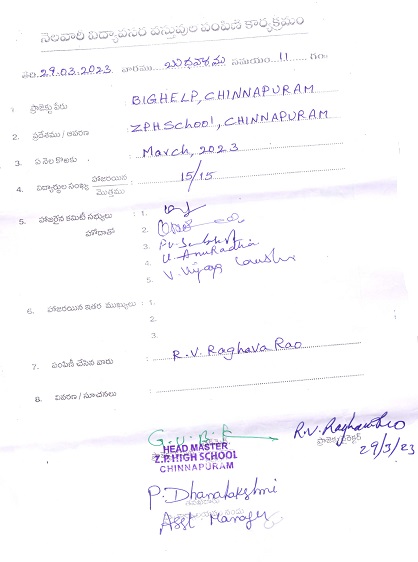 నెలవారీ విద్యావసర వస్తువుల పంపిణి కార్యక్రమం
తేది. 29.03.2023 వారము బుధవారము సమయం 11 గం
1. ప్రాజెక్టు పేరు BIGHELP, CHINNAPURAM
2. ప్రదేశము / ఆవరణ ZPH School, CHINNAPURAM
3. ఏ నెల కొఱకు March, 2023
4. విద్యార్థుల సంఖ్య హాజరయిన / మొత్తము 15/15
5. హాజరైన కమిటీ సభ్యులు : 1.
హోదాతో 2.
3.
4. U. Anuradha
5. V. Vijaya
6. హాజరయిన ఇతర ముఖ్యులు : 1.
2.
3.
7. పంపిణీ చేసిన వారు R.V. Raghava Rao
8. వివరణ / సూచనలు
HEAD MASTER
Z.P.HIGH SCHOOL
CHINNAPURAM
R.V. Raghava Rao
ప్రాజెక్ట్ డైరెక్టర్
29/3/23
P. Dhanalakshmi
Asst Manager